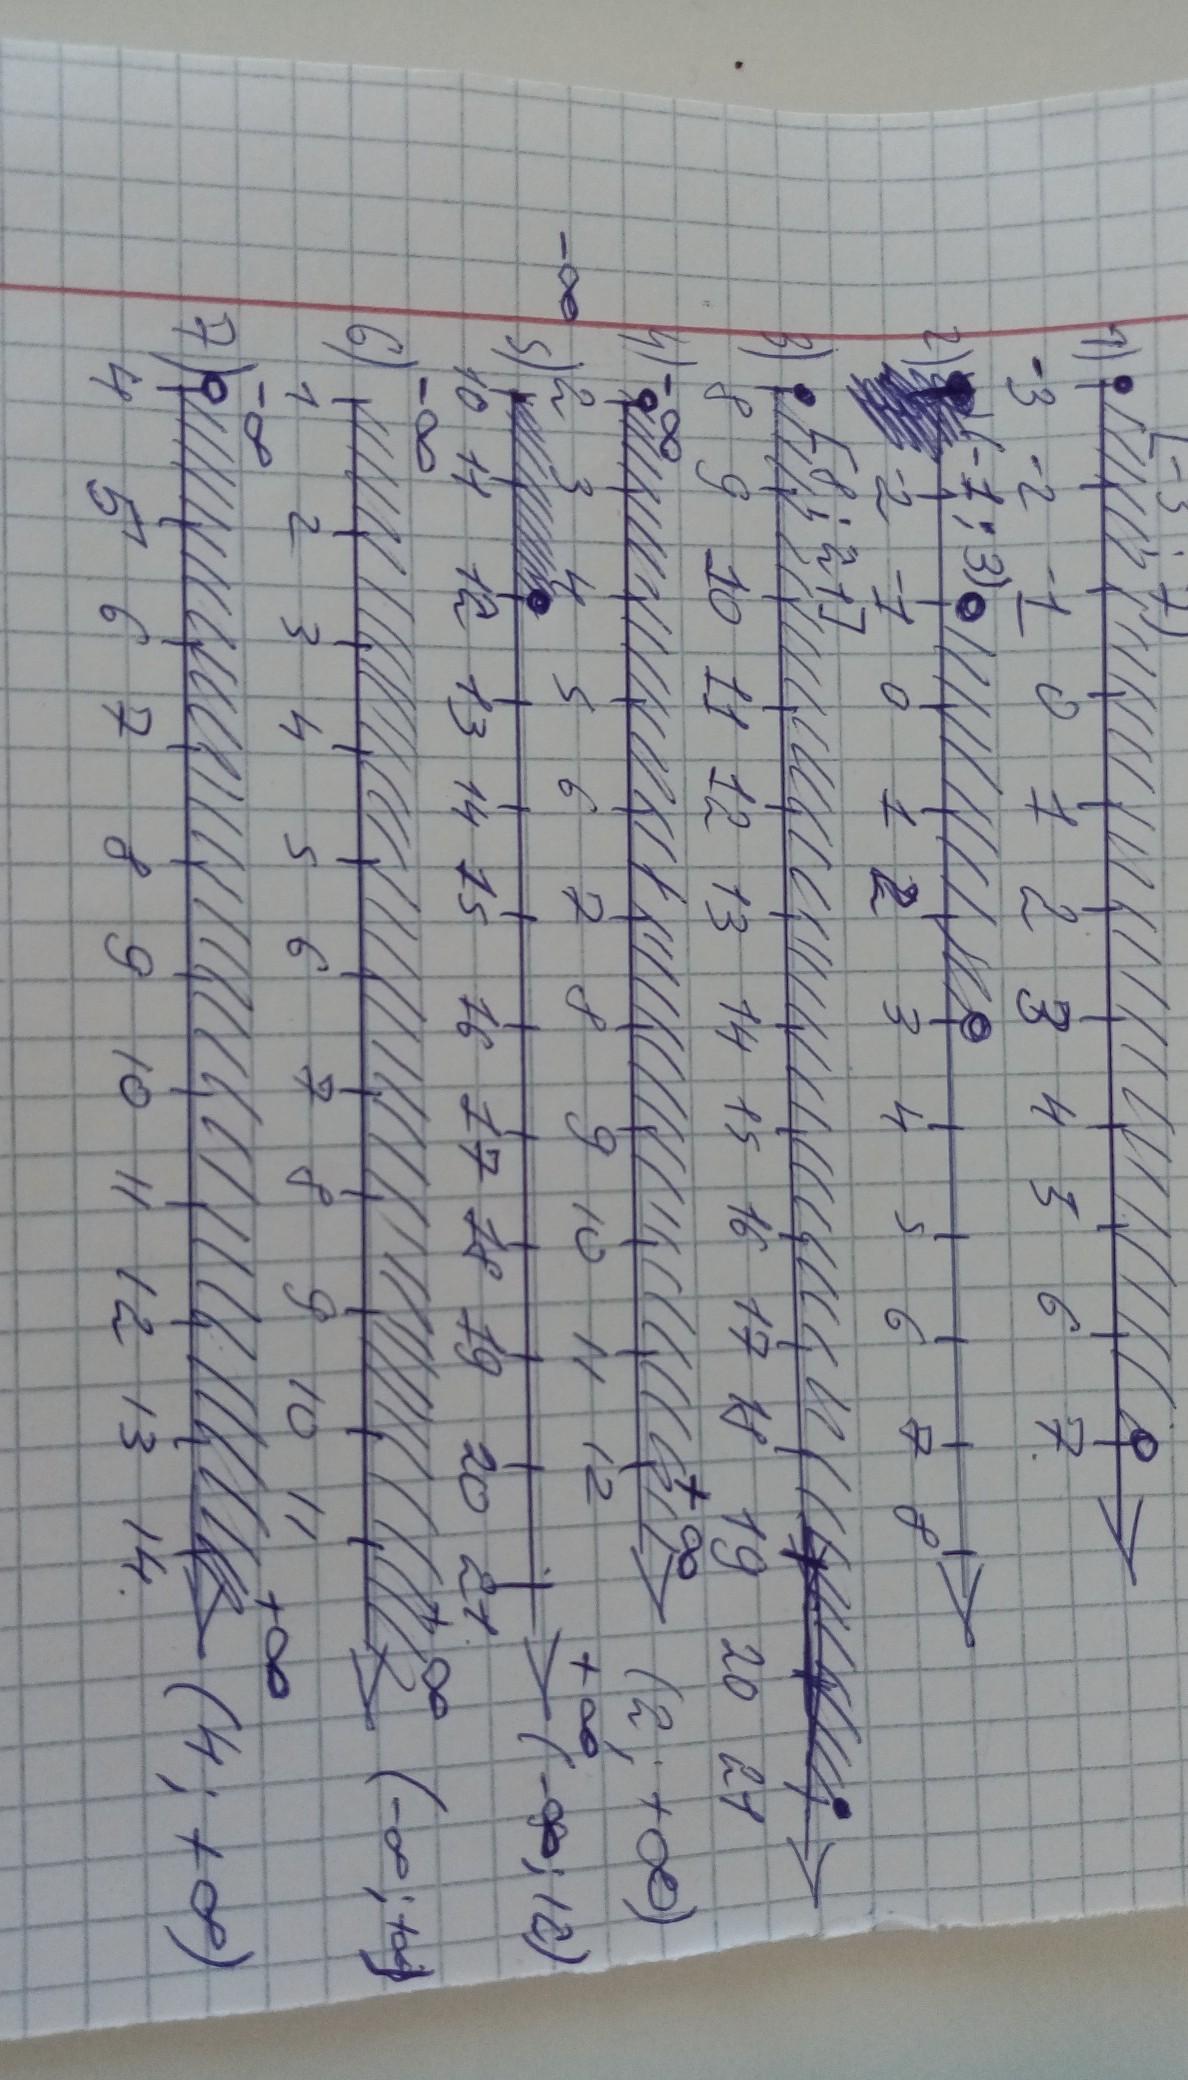 1) [-3; 7)
-3 -2 -1 0 1 2 3 4 5 6 7
2) (-1; 3)
-2 -1 0 1 2 3 4 5 6 7 8
3) [8; 21]
8 9 10 11 12 13 14 15 16 17 18 19 20 21
4) -∞ +∞ (2; +∞)
2 3 4 5 6 7 8 9 10 11 12
-∞ 5) +∞ (-∞; 12)
10 11 12 13 14 15 16 17 18 19 20 21
6) -∞ +∞ (-∞; +∞)
1 2 3 4 5 6 7 8 9 10 11
7) -∞ +∞ (4; +∞)
4 5 6 7 8 9 10 11 12 13 14